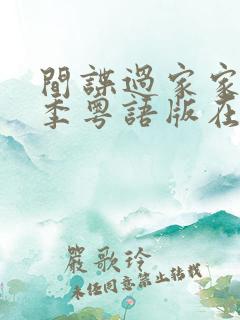 間諜過家家
季粵語版在
嚴歌玲
未經同意禁止轉載